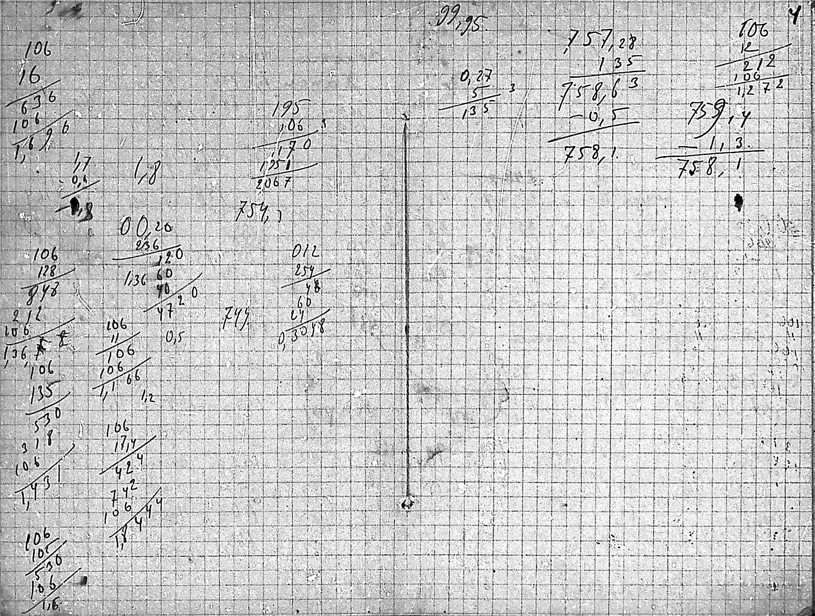 99,95
4
106
16
636
106
1,696
1,7
1,8
195
106
1170
195
2067
0,27
5
135
757,28
135
758,63
-0,5
758,1
106
12
212
106
1,272
759,4
-1,3
758,1
00,20
236
120
60
40
4720
1,36
0,5
012
254
48
60
24
0,3048
106
128
848
212
106
106
11
106
106
1,166
1,2
106
135
530
318
106
1,431
106
17,4
424
742
106
1,8444
106
530
106
1,6